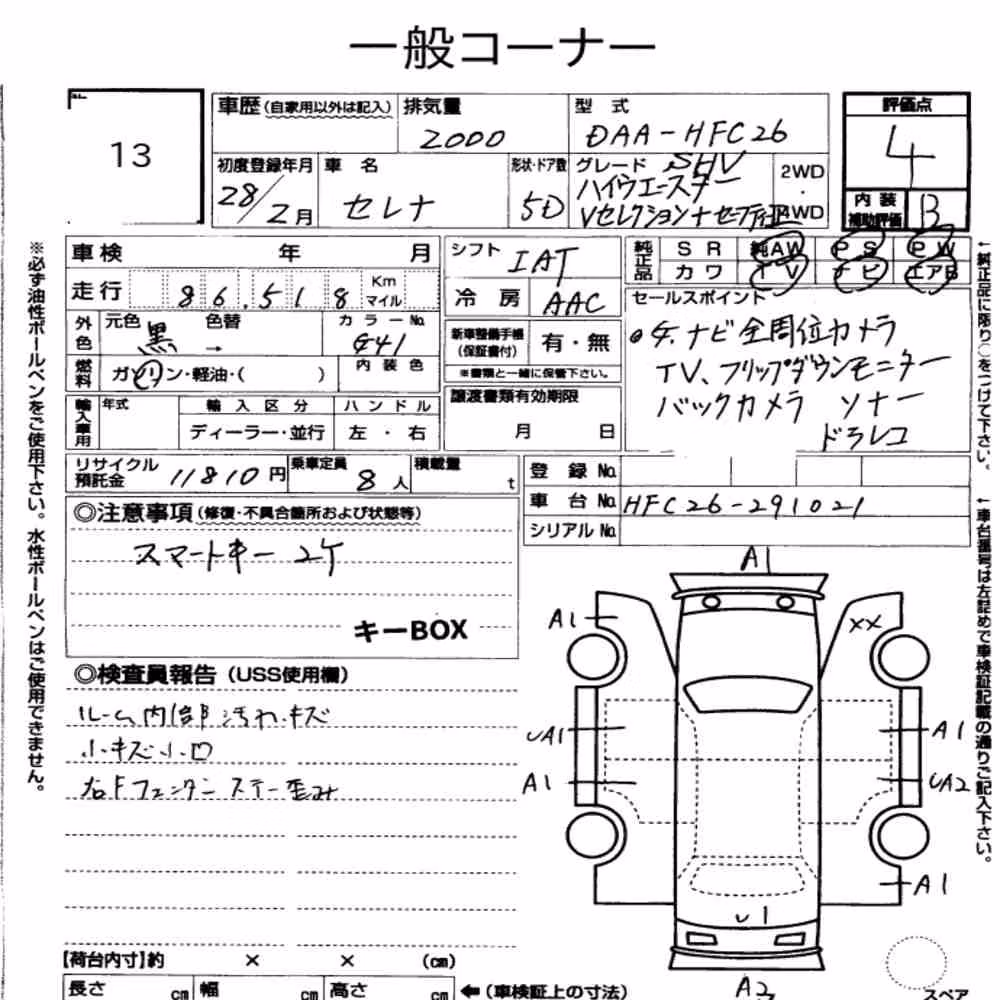 一般コーナー
13
車歴 (自家用以外は記入) 排気量 2000 型式 DAA-HFC26
評価点 4
初度登録年月 28/2月 車名 セレナ 形状・ドア数 5D グレード SHV ハイウエースター Vセレクション+セーフティ 2WD・4WD
内装補助評価 B
車検 年 月 シフト IAT
純正品 SR 純AW PS PW
カワ TV ナビ エアB
走行 86,518 Km マイル 冷房 AAC
セールスポイント
外色 元色 黒 色替 → カラーNo. G41
新車整備手帳 (保証書付) 有・無
※書類と一緒に保管下さい。
燃料 ガソリン・軽油・( ) 内装色
●4.ナビ 全周位カメラ
TV、フリップダウンモニター
バックカメラ ソナー
ドラレコ
輸入車用 年式 輸入区分 ハンドル
ディーラー・並行 左・右
譲渡書類有効期限
月 日
リサイクル預託金 11810円 乗車定員 8人 積載量 t
登録No.
車台No. HFC26-291021
シリアルNo.
◎注意事項 (修復・不具合箇所および状態等)
スマートキー 2ケ
キーBOX
◎検査員報告 (USS使用欄)
ルーム内部汚れキズ
小キズ小凹
右Fフェンダーステー歪み
A1
A1
XX
UA1
A1
A1
UA2
A1
U1
A2
スペア
【荷台内寸】約 × × (cm)
長さ cm 幅 cm 高さ cm ←(車検証上の寸法)
※必ず油性ボールペンをご使用下さい。水性ボールペンはご使用できません。
←純正品に限り○をつけて下さい。
←車台番号は左詰めで車検証記載の通りご記入下さい。